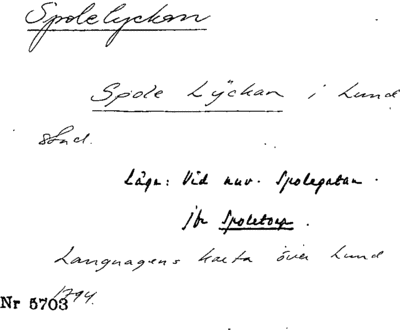 Spolelyckan
Spole Lÿckan i Lund
Läge: Vid nuv. Spolegatan.
jfr Spoletorp.
Languagens karta över Lund
1794.
Nr 5703